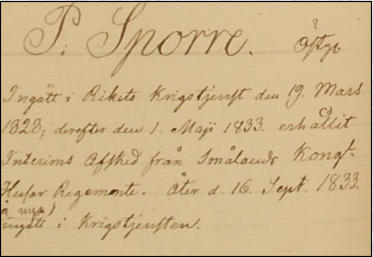 P: Sporre.
Ingått i Rikets Krigstjenst den 19. Mars
1828, derefter den 1. Maji 1833. erhållit
Interims Afsked från Smålands Kongl.
Husar Regemente. Åter d. 16. Sept. 1833.
å nyo)
ingått i Krigstjensten.